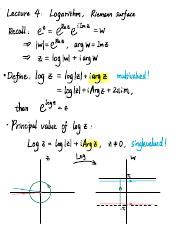 Lecture 4. Logarithm, Riemann surface
Recall. e^z = e^{Re z} e^{i Im z} = w
⇒ |w| = e^{Re z}, arg w = Im z
⇒ z = log|w| + i arg w
• Define. log z = log|z| + i arg z multivalued!
= log|z| + i Arg z + 2πi m,
then e^{log z} = z
• Principal value of log z:
Log z = log|z| + i Arg z, z ≠ 0, single valued!
z Log w
π
-π